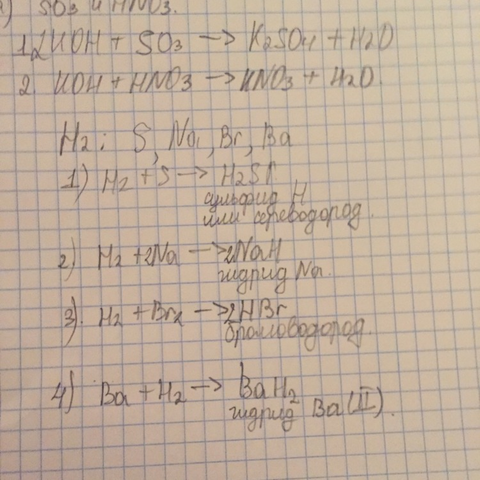 SO3 и HNO3.
1. 2KOH + SO3 → K2SO4 + H2O
2. KOH + HNO3 → KNO3 + H2O.
H2: S, Na, Br, Ba
1) H2 + S → H2S↑
сульфид H
или сероводород.
2) H2 + 2Na → 2NaH
гидрид Na.
3) H2 + Br2 → 2HBr
бромоводород.
4) Ba + H2 → BaH2
гидрид Ba(II).